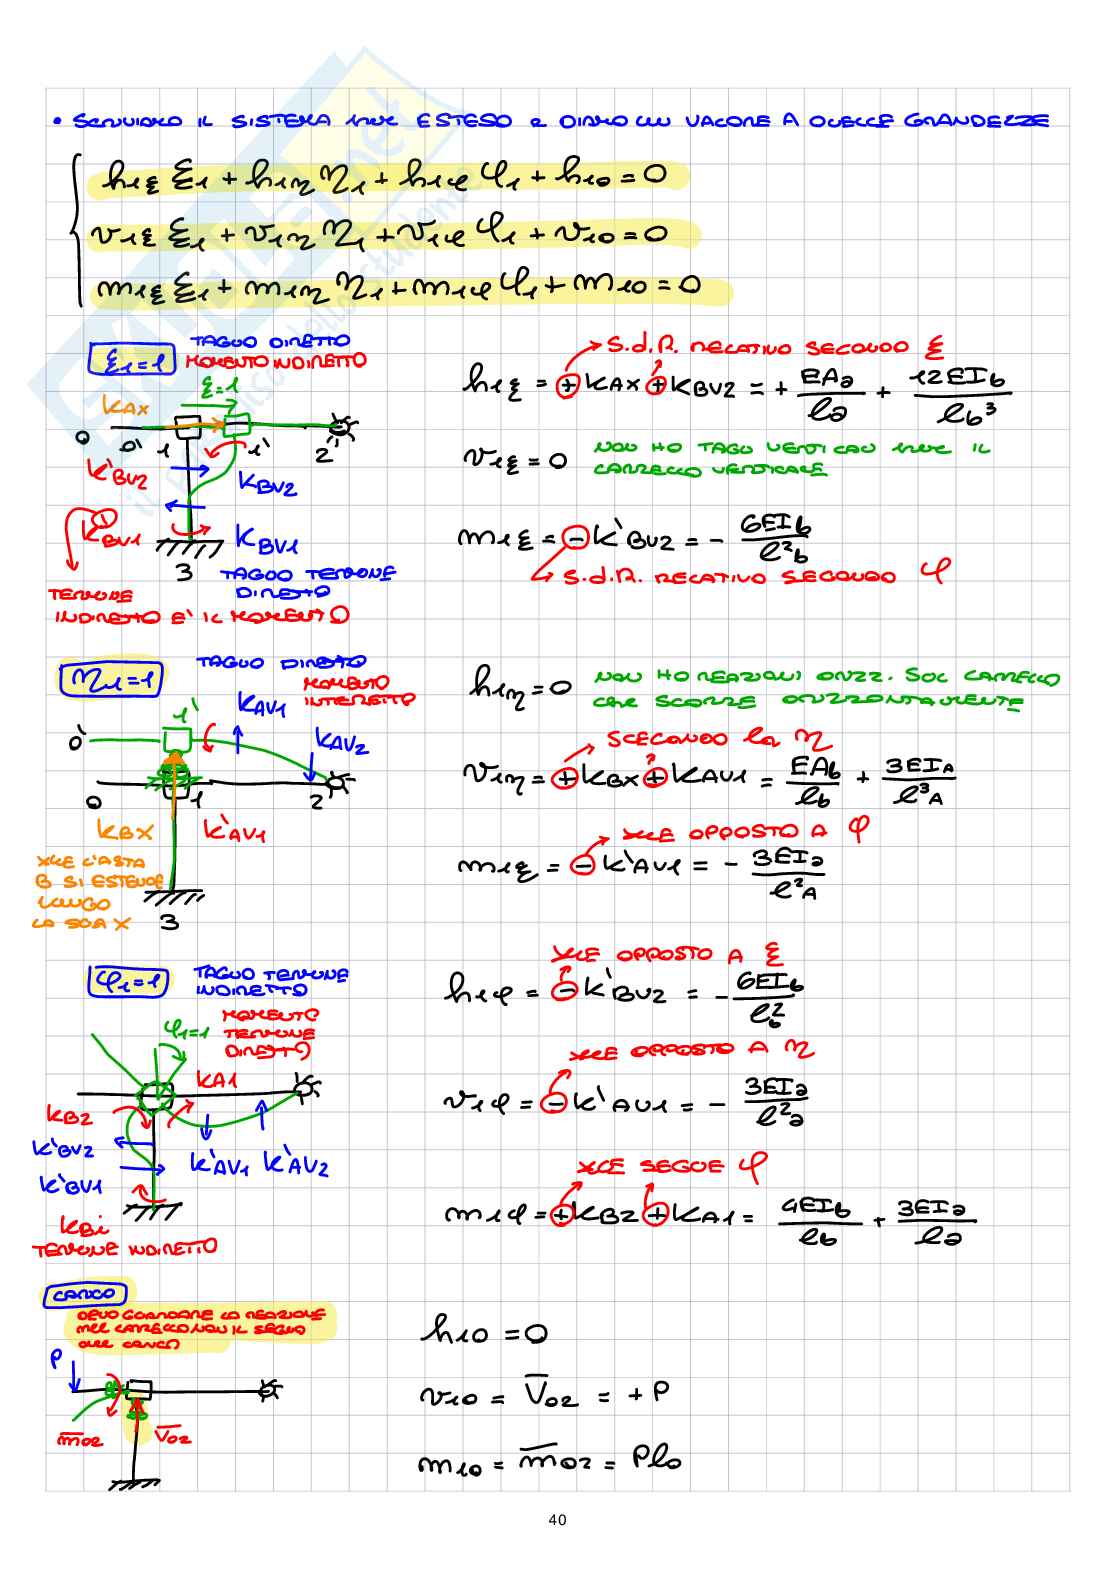 • SCRIVIAMO IL SISTEMA PER ESTESO e DIAMO UN VALORE A QUELLE GRANDEZZE
h₁ξ ξ₁ + h₁η η₁ + h₁φ φ₁ + h₁₀ = 0
v₁ξ ξ₁ + v₁η η₁ + v₁φ φ₁ + v₁₀ = 0
m₁ξ ξ₁ + m₁η η₁ + m₁φ φ₁ + m₁₀ = 0
ξ₁=1
TAGLIO DIRETTO
MOMENTO INDIRETTO
ξ=1
KAX
0 0' 1 1' 2
K'BV2
KBV2
K'BV1
KBV1
3
TAGLIO TERMINE
DIRETTO
TERMINE
INDIRETTO E' IL MOMENTO
S.d.R. RELATIVO SECONDO ξ
h₁ξ = + KAX + KBV2 = + EAa/la + 12EIb/lb³
v₁ξ = 0
NON HO TAGLI VERTICALI PER IL
CARRELLO VERTICALE
m₁ξ = - K'BV2 = - 6EIb/l²b
S.d.R. RELATIVO SECONDO φ
η₁=1
TAGLIO DIRETTO
MOMENTO
INDIRETTO
1'
KAV1
0'
KAV2
0 1 2
KBX
K'AV1
XKE L'ASTA
B SI ESTENDE
LUNGO
LA SUA X
3
h₁η = 0
NON HO REAZIONI ORIZZ. SOL CARRELLO
CHE SCORRE ORIZZONTALMENTE
SCECONDO la η
v₁η = + KBX + KAV1 = EAb/lb + 3EIA/l³A
XKE OPPOSTO A φ
m₁ξ = - K'AV1 = - 3EIa/l²A
φ₁=1
TAGLIO TERMINE
INDIRETTO
MOMENTO
TERMINE
DIRETTO
φ₁=1
KA1
KB2
K'BV2
K'AV1 K'AV2
K'BV1
KBi
TERMINE INDIRETTO
XKE OPPOSTO A ξ
h₁φ = - K'BV2 = - 6EIb/lb²
XKE OPPOSTO A η
v₁φ = - K'AV1 = - 3EIa/l²a
XKE SEGUE φ
m₁φ = + KB2 + KA1 = 4EIb/lb + 3EIa/la
CARICO
DEVO GUARDARE LA REAZIONE
NEL CARRELLO NON IL SEGNO
DEL CARICO
P
m̅02
V̅02
h₁₀ = 0
v₁₀ = V̅02 = + P
m₁₀ = m̅02 = Pl₀
40